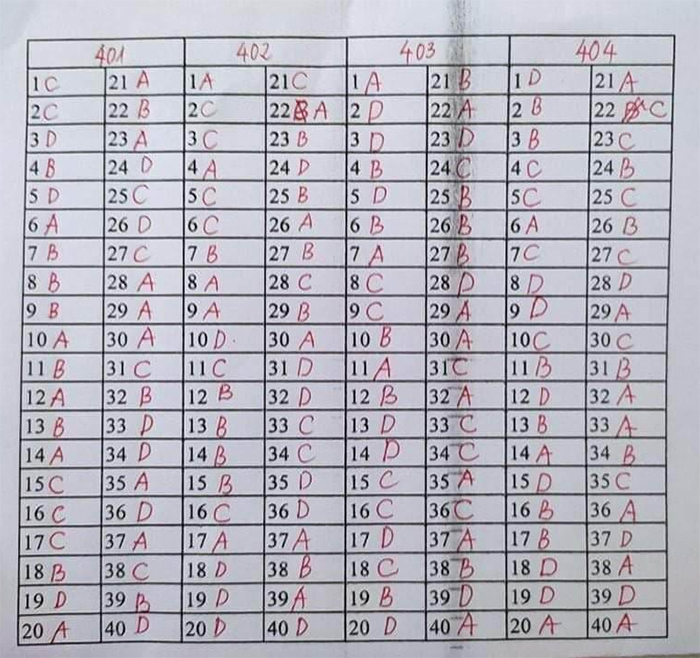 401 402 403 404
1 C 21 A 1 A 21 C 1 A 21 B 1 D 21 A
2 C 22 B 2 C 22 A 2 D 22 A 2 B 22 C
3 D 23 A 3 C 23 B 3 D 23 D 3 B 23 C
4 B 24 D 4 A 24 D 4 B 24 C 4 C 24 B
5 D 25 C 5 C 25 B 5 D 25 B 5 C 25 C
6 A 26 D 6 C 26 A 6 B 26 B 6 A 26 B
7 B 27 C 7 B 27 B 7 A 27 B 7 C 27 C
8 B 28 A 8 A 28 C 8 C 28 D 8 D 28 D
9 B 29 A 9 A 29 B 9 C 29 A 9 D 29 A
10 A 30 A 10 D 30 A 10 B 30 A 10 C 30 C
11 B 31 C 11 C 31 D 11 A 31 C 11 B 31 B
12 A 32 B 12 B 32 D 12 B 32 A 12 D 32 A
13 B 33 D 13 B 33 C 13 D 33 C 13 B 33 A
14 A 34 D 14 B 34 C 14 D 34 C 14 A 34 B
15 C 35 A 15 B 35 D 15 C 35 A 15 D 35 C
16 C 36 D 16 C 36 D 16 C 36 C 16 B 36 A
17 C 37 A 17 A 37 A 17 D 37 A 17 B 37 D
18 B 38 C 18 D 38 B 18 C 38 B 18 D 38 A
19 D 39 B 19 D 39 A 19 B 39 D 19 D 39 D
20 A 40 D 20 D 40 D 20 D 40 A 20 A 40 A